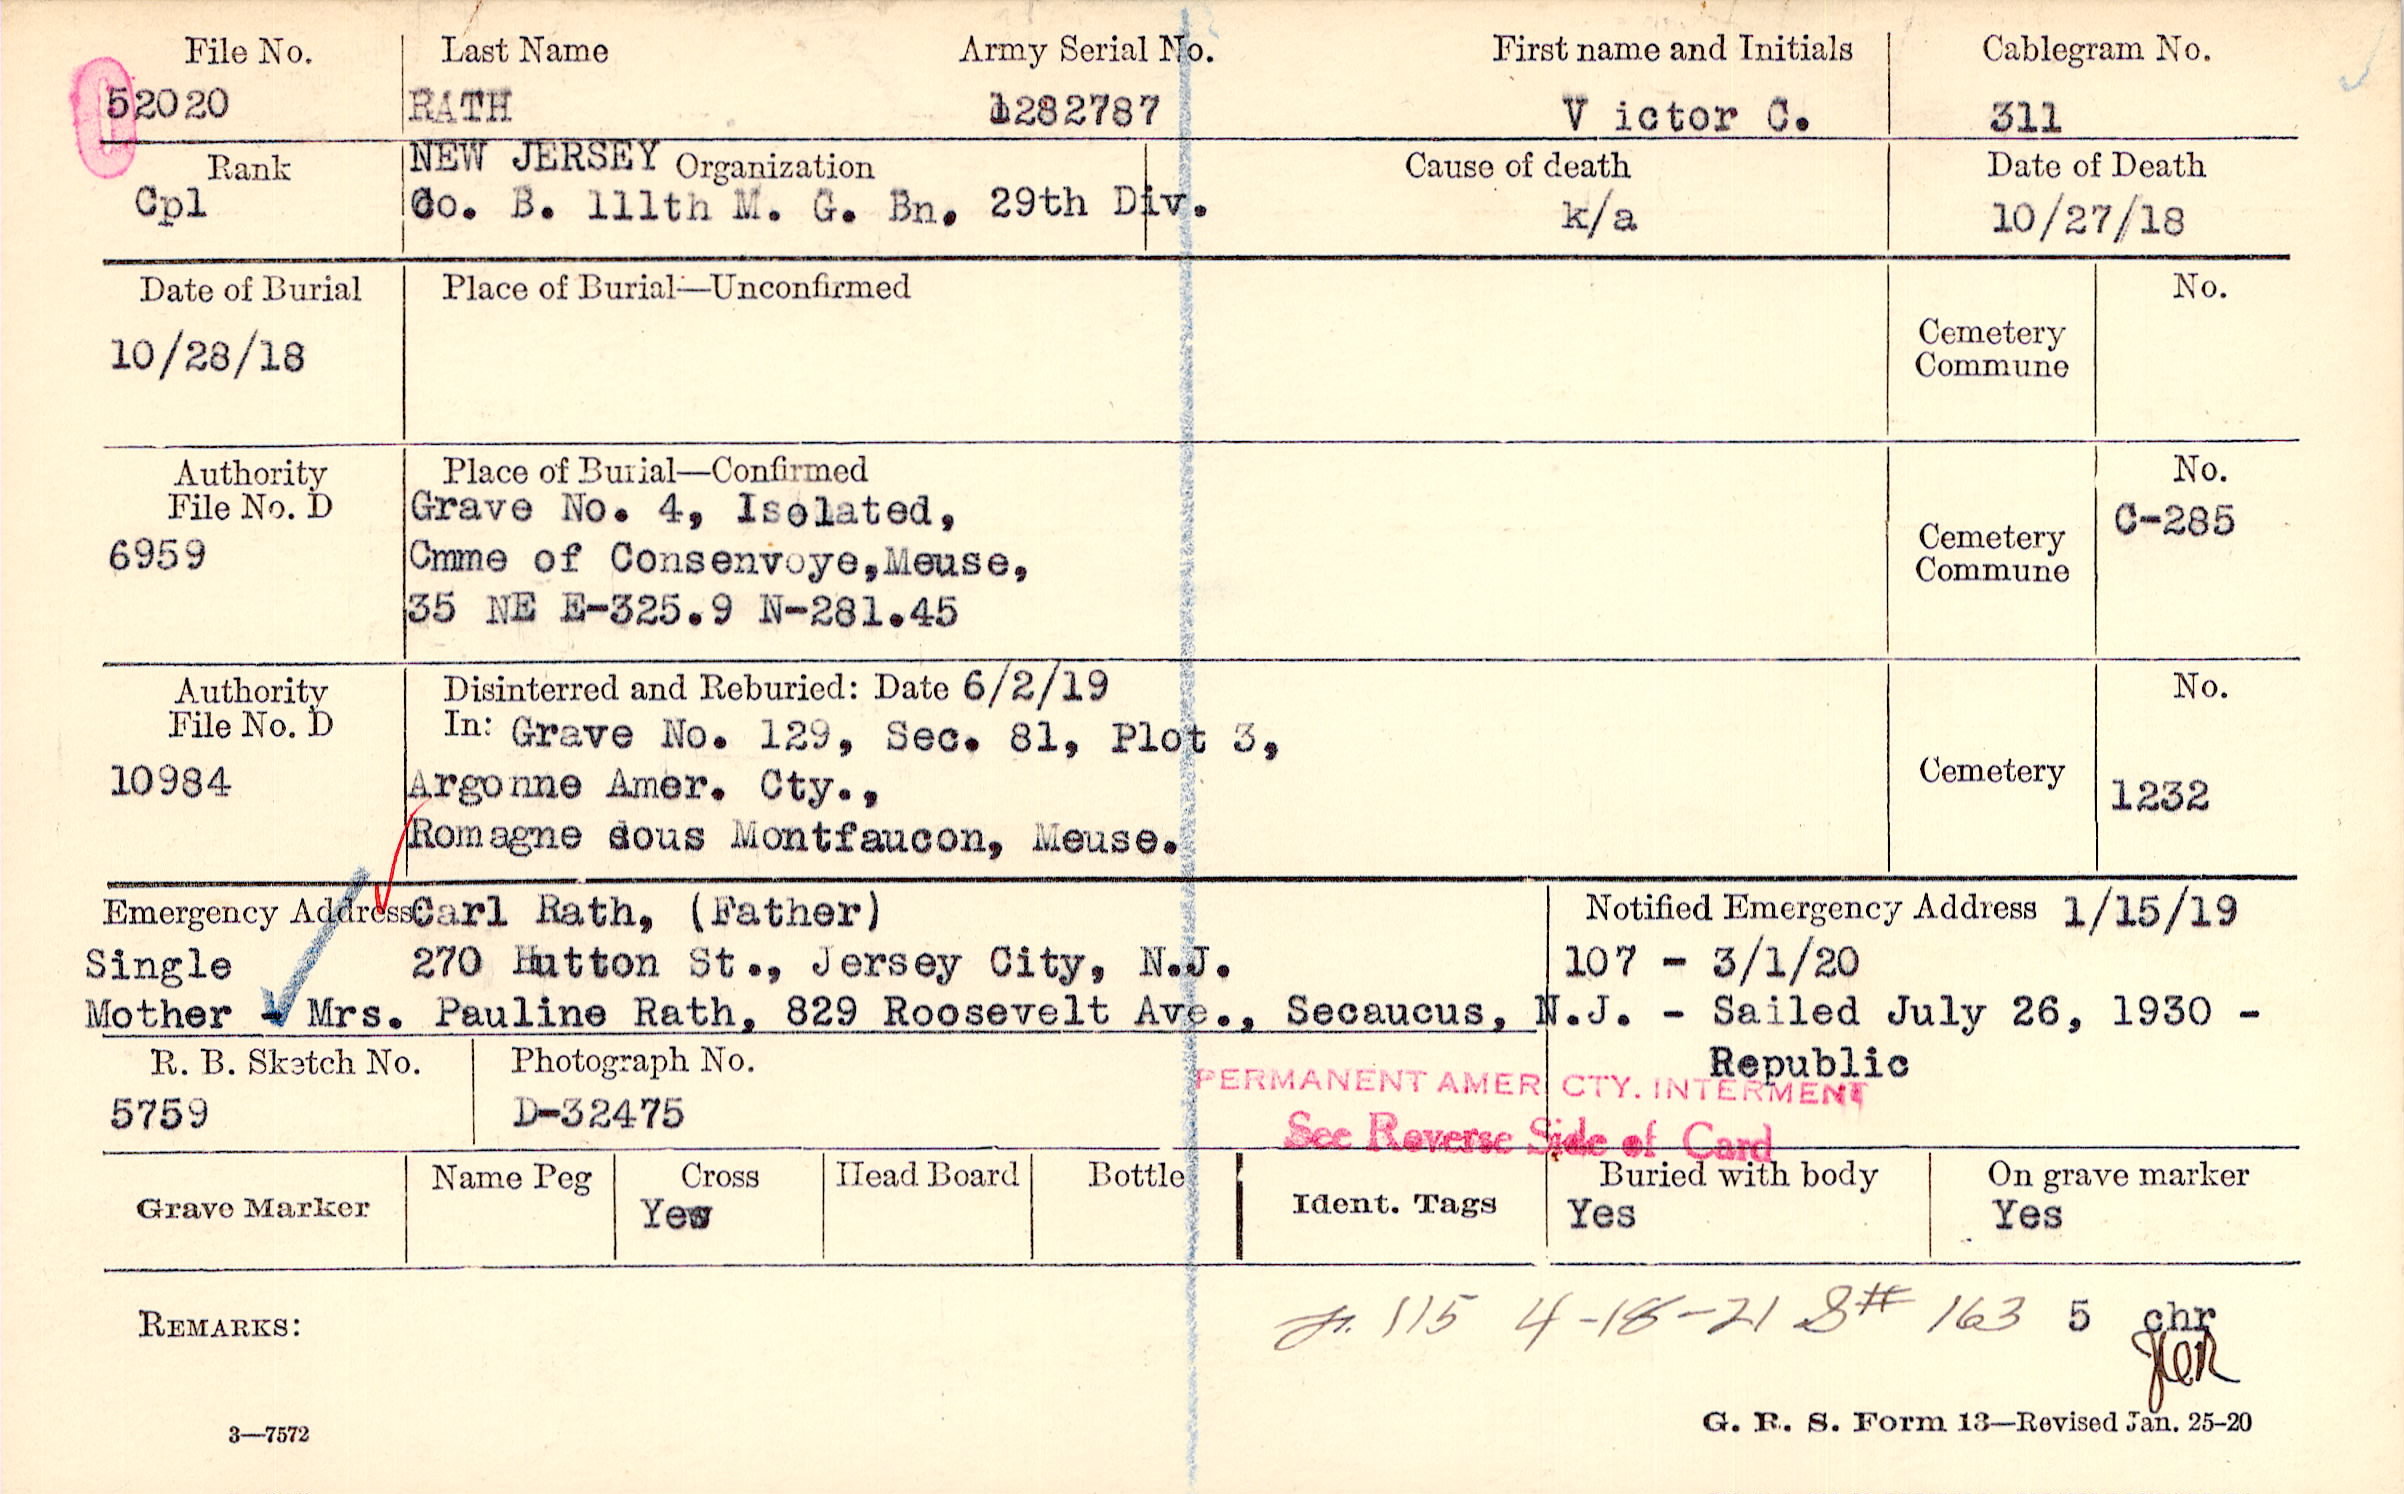 File No. Last Name Army Serial No. First name and Initials Cablegram No.
52020 RATH 1282787 V ictor C. 311
Rank NEW JERSEY Organization Cause of death Date of Death
Cpl Co. B. 111th M. G. Bn. 29th Div. k/a 10/27/18
Date of Burial Place of Burial—Unconfirmed No.
10/28/18 Cemetery
Commune
Authority Place of Burial—Confirmed No.
File No. D Grave No. 4, Isolated, C-285
6959 Cmme of Consenvoye,Meuse, Cemetery
Commune
35 NE E-325.9 N-281.45
Authority Disinterred and Reburied: Date 6/2/19 No.
File No. D In: Grave No. 129, Sec. 81, Plot 3,
10984 Argonne Amer. Cty., Cemetery 1232
Romagne sous Montfaucon, Meuse.
Emergency Address Carl Rath, (Father) Notified Emergency Address 1/15/19
Single 270 Hutton St., Jersey City, N.J. 107 - 3/1/20
Mother - Mrs. Pauline Rath, 829 Roosevelt Ave., Secaucus, N.J. - Sailed July 26, 1930 -
Republic
R. B. Sketch No. Photograph No.
PERMANENT AMER CTY. INTERMENT
5759 D-32475
See Reverse Side of Card
Grave Marker Name Peg Cross Head Board Bottle Ident. Tags Buried with body On grave marker
Yes Yes Yes
REMARKS: 115 4-18-21 S# 163 5 chr
3—7572 G. R. S. Form 13—Revised Jan. 25-20